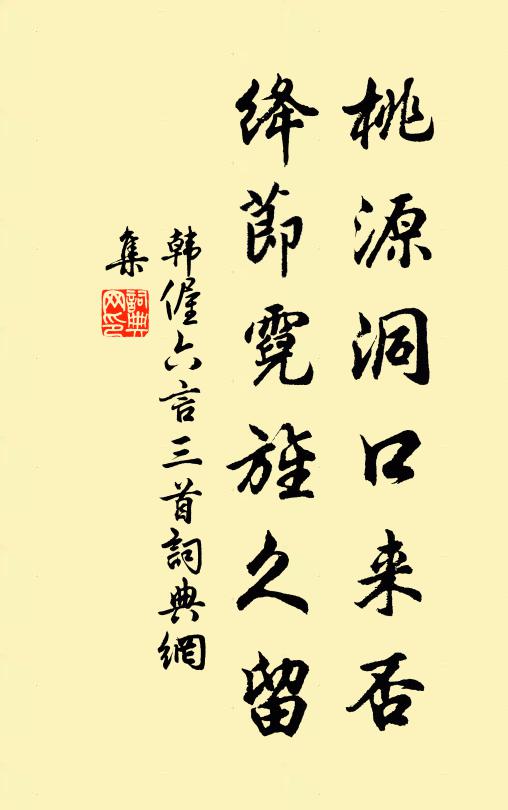 桃源洞口来否
绛节霓旌久留
韩偓六言三首詞典網
集
詞典
网印